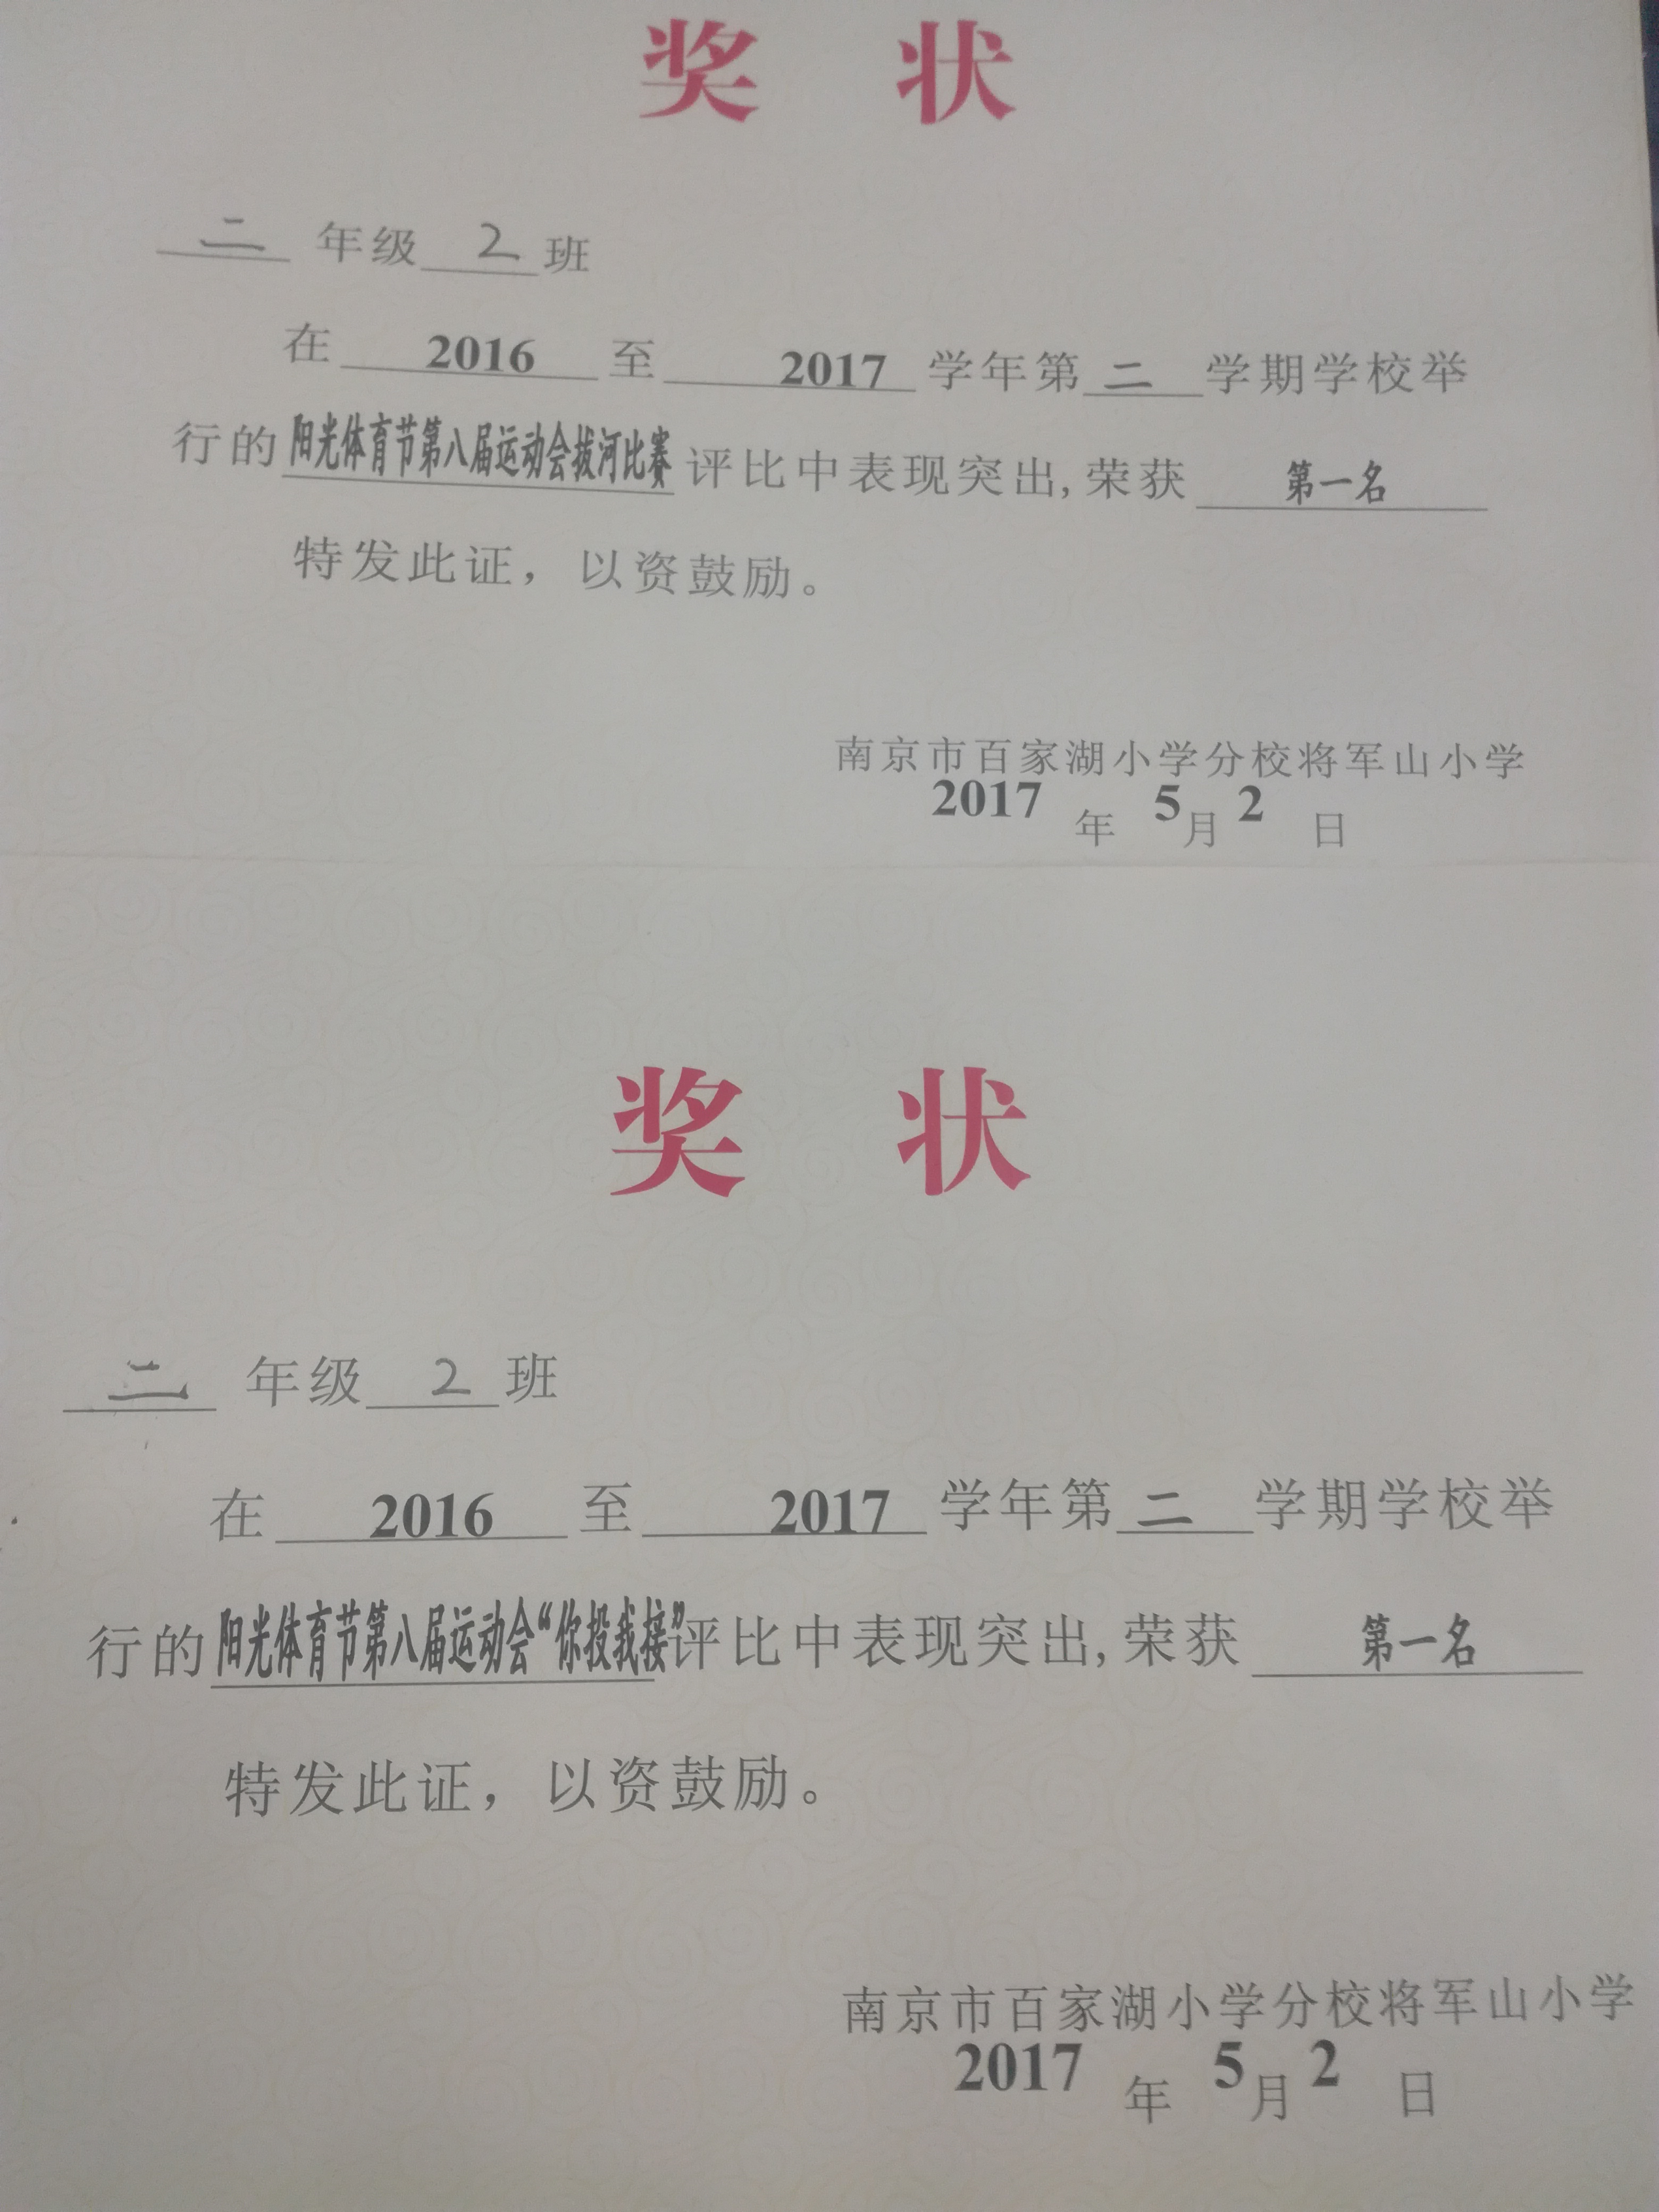 奖 状
二 年级 2 班
在 2016 至 2017 学年第 二 学期学校举
行的 阳光体育节第八届运动会拔河比赛 评比中表现突出,荣获 第一名
特发此证，以资鼓励。
南京市百家湖小学分校将军山小学
2017 年 5 月 2 日
奖 状
二 年级 2 班
在 2016 至 2017 学年第 二 学期学校举
行的 阳光体育节第八届运动会“你投我接”评比中表现突出,荣获 第一名
特发此证，以资鼓励。
南京市百家湖小学分校将军山小学
2017 年 5 月 2 日